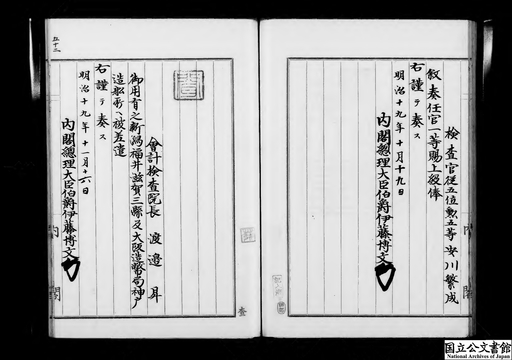 検査官従五位勲五等安川繁成
叙奏任官一等賜上級俸
右謹テ奏ス
明治十九年十月十九日
内閣總理大臣伯爵伊藤博文
内閣
會計檢査院長 渡邉昇
御用有之新潟福井滋賀三縣及大阪造幣局神戸
造船所ヘ被差遣
右謹テ奏ス
明治十九年十一月十六日
内閣總理大臣伯爵伊藤博文
内閣
五十三
国立公文書館
National Archives of Japan